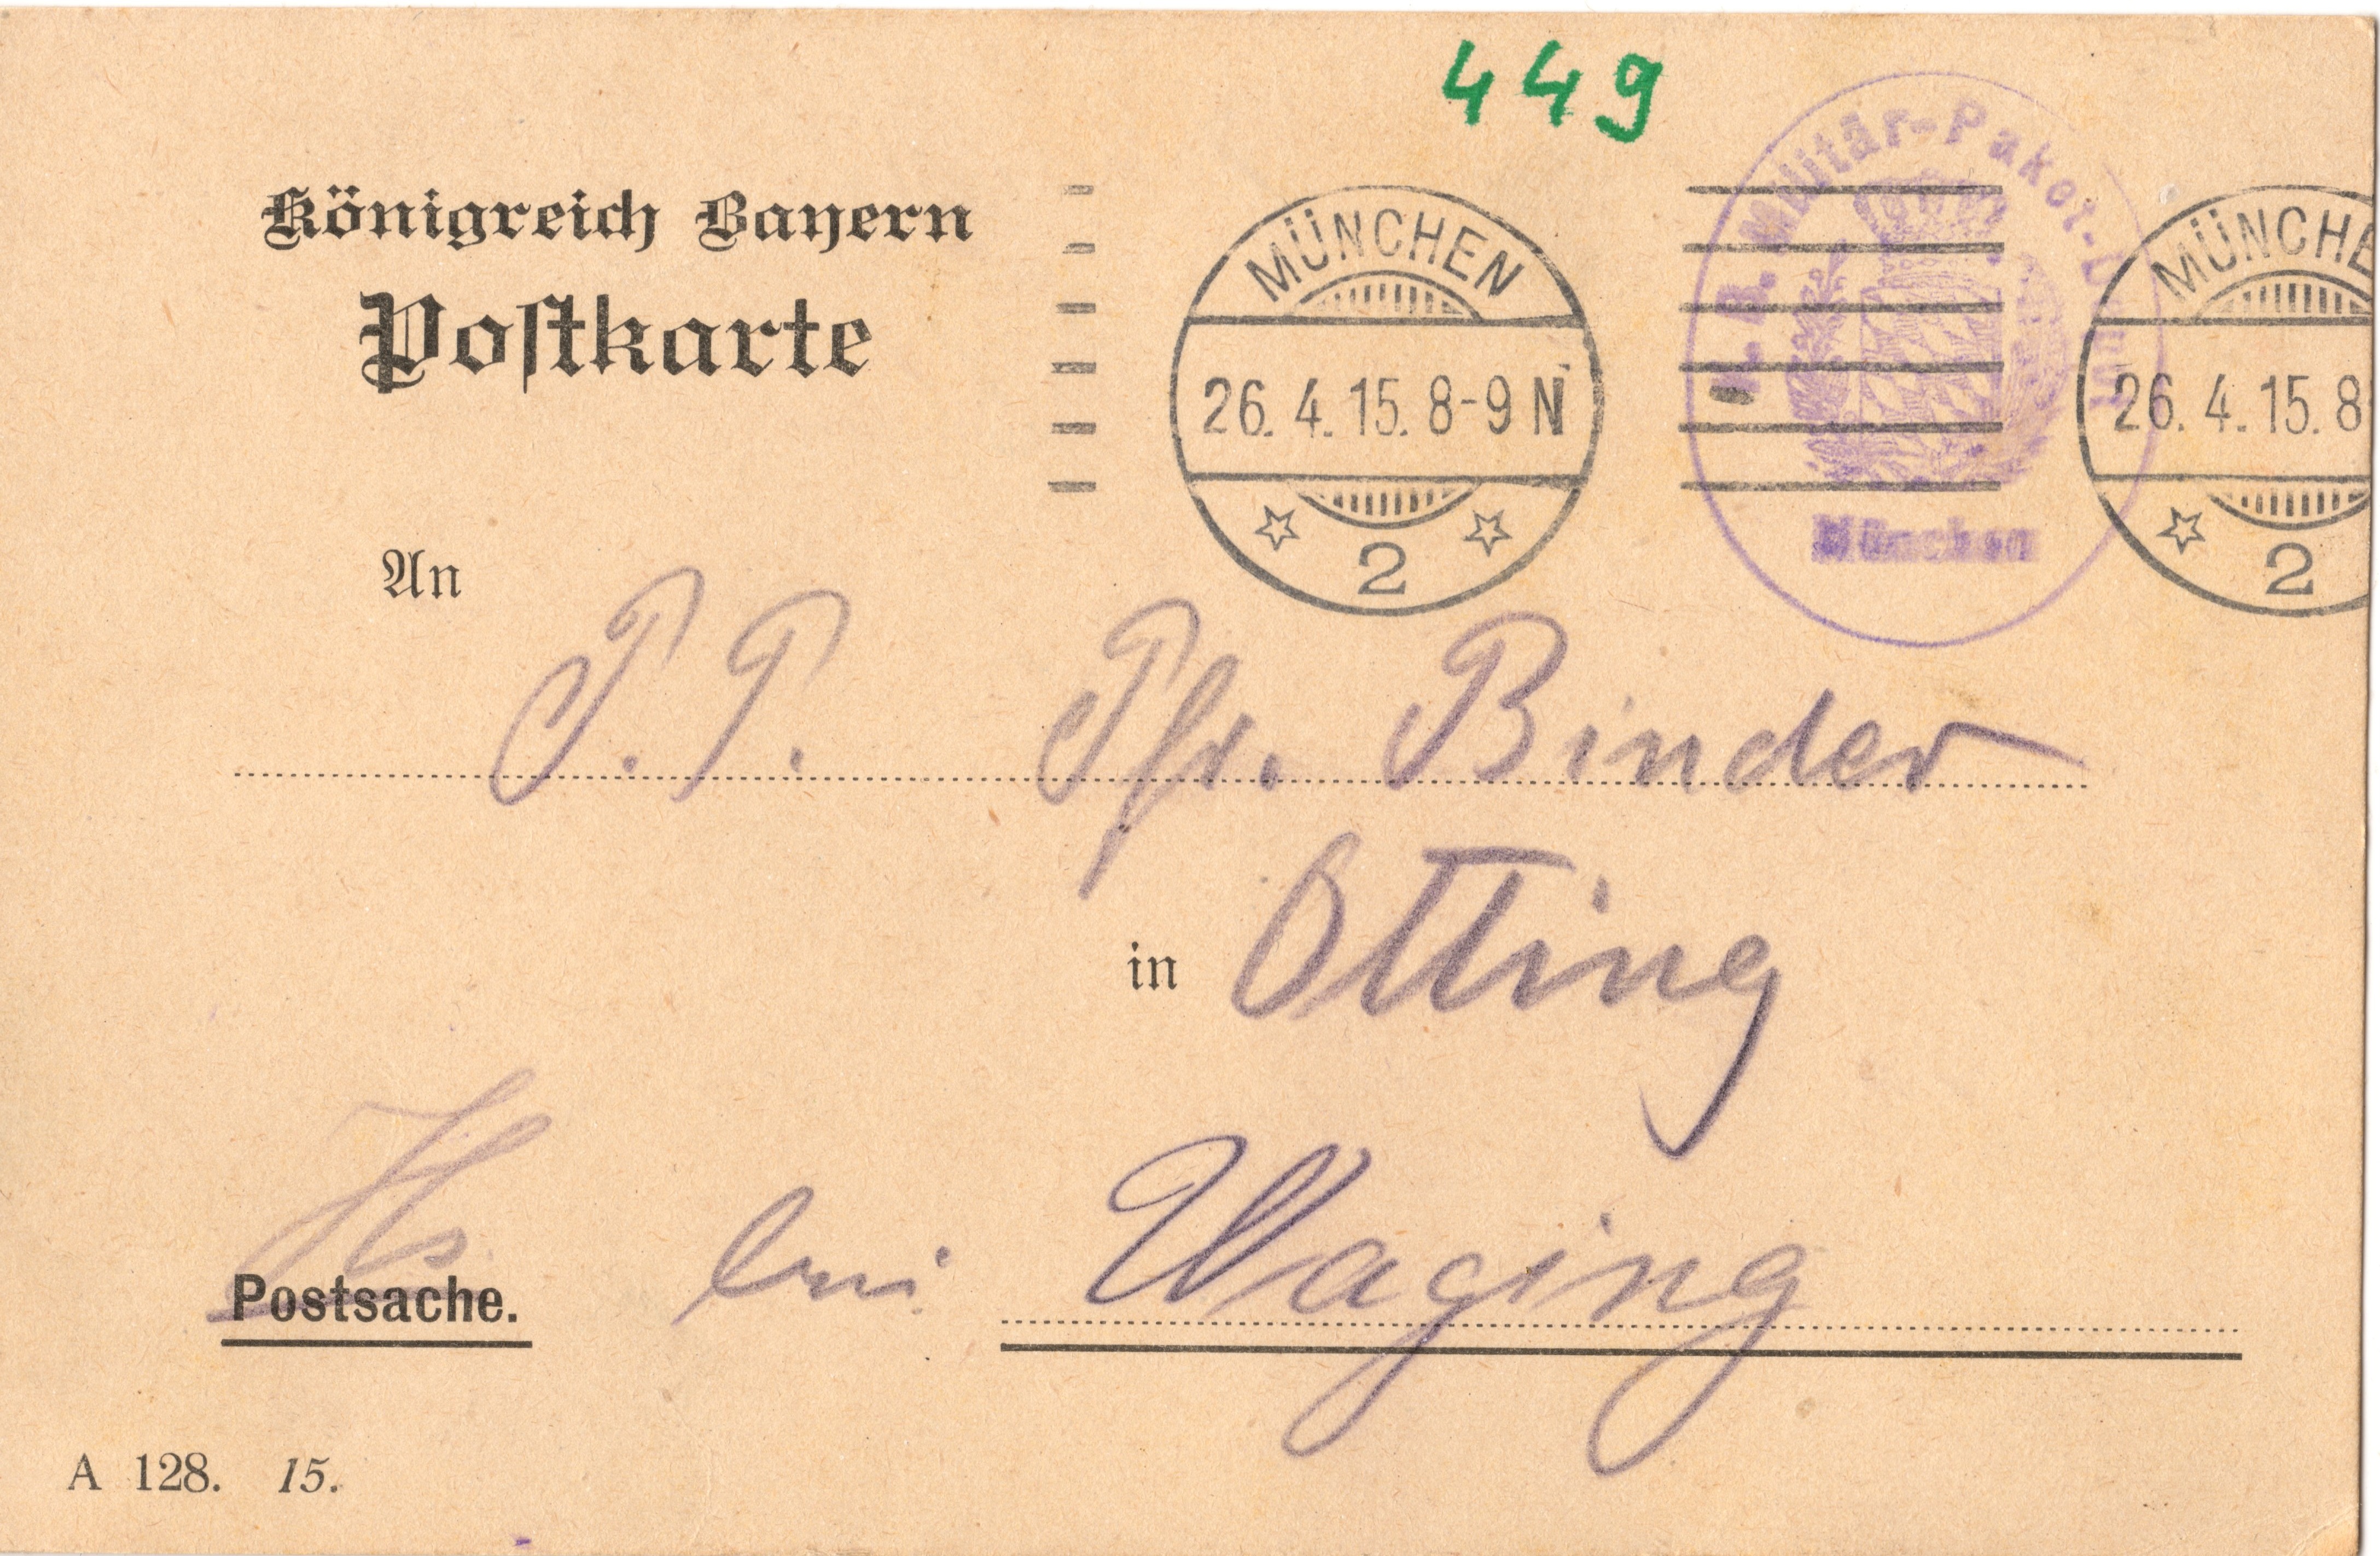 449
Königreich Bayern
Postkarte
MÜNCHEN
26.4.15.8-9 N
2
K. B. Militär-Paket-Amt
München
MÜNCHE
26.4.15.8
2
An
P. T. Pfr. Binder
in Otting
bei Waging
Postsache.
A 128. 15.